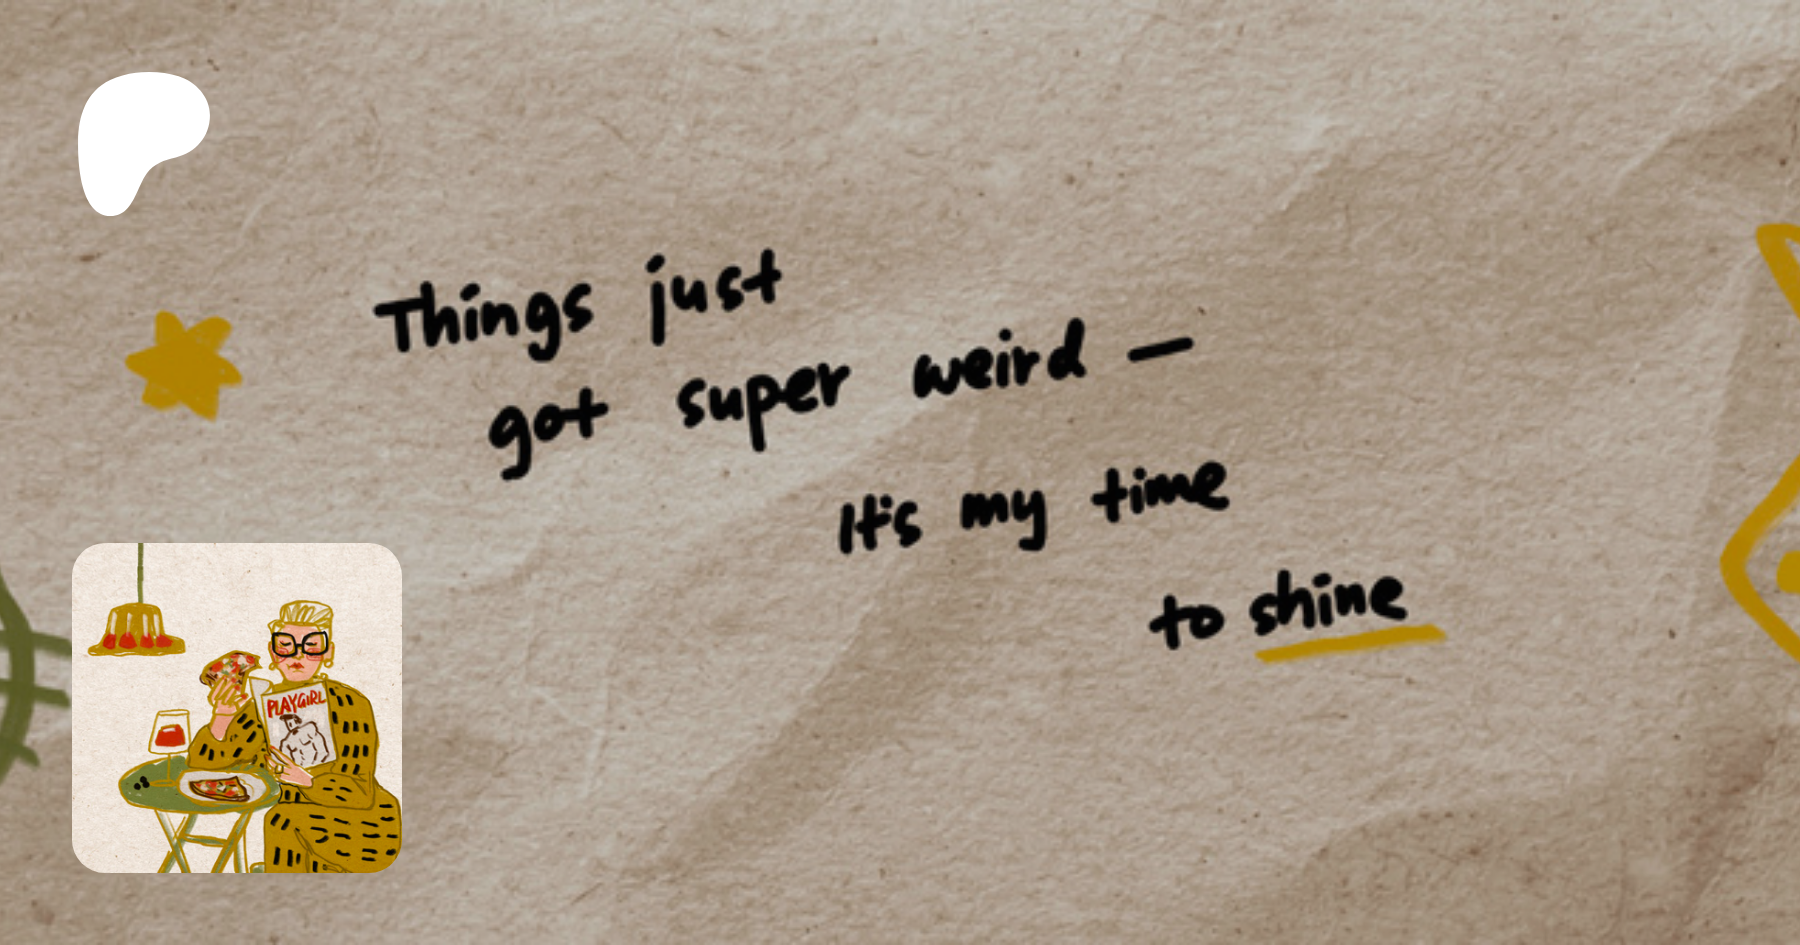 Things just
got super weird —
It's my time
to shine
PLAYGIRL